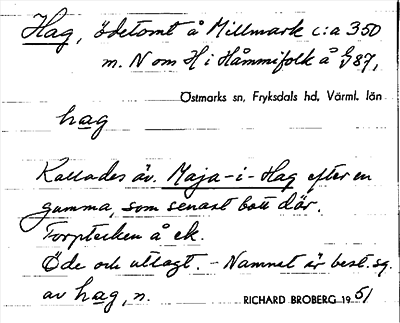 Hag, ödetomt å Millmark c:a 350
m. N om H i Håmmifolk å G87,
Östmarks sn, Fryksdals hd, Värml. län
hag
Kallades äv. Maja-i-Hag efter en
gumma, som senast bott där.
Torptecken å ek.
Öde och utlagt. - Namnet är best. sg.
av hag, n.
RICHARD BROBERG 1951